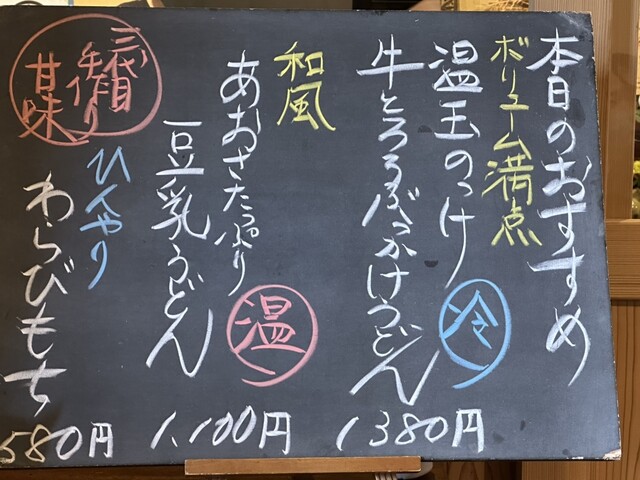 本日のおすすめ
ボリューム満点
温玉のっけ
冷
牛とろろぶっかけうどん
1380円
和風
あおさたっぷり
温
豆乳うどん
1,100円
三代目
手作り
甘味
ひんやり
わらびもち
580円